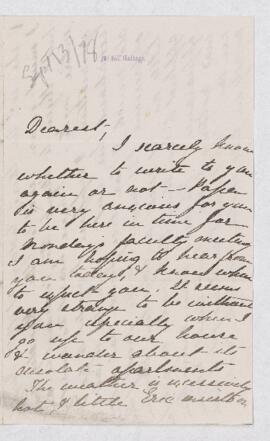 Sept 13/78
Dearest,
I scarcely know
whether to write to you
again or not – Papa
is very anxious for you
to be here in time for
Mondays faculty meeting
I am hoping to hear from
you today, & know when
to expect you. It seems
very strange to be without
you especially when I
go up to our house
& wander about its
desolate apartments
The weather is excessively
hot, & little Eric